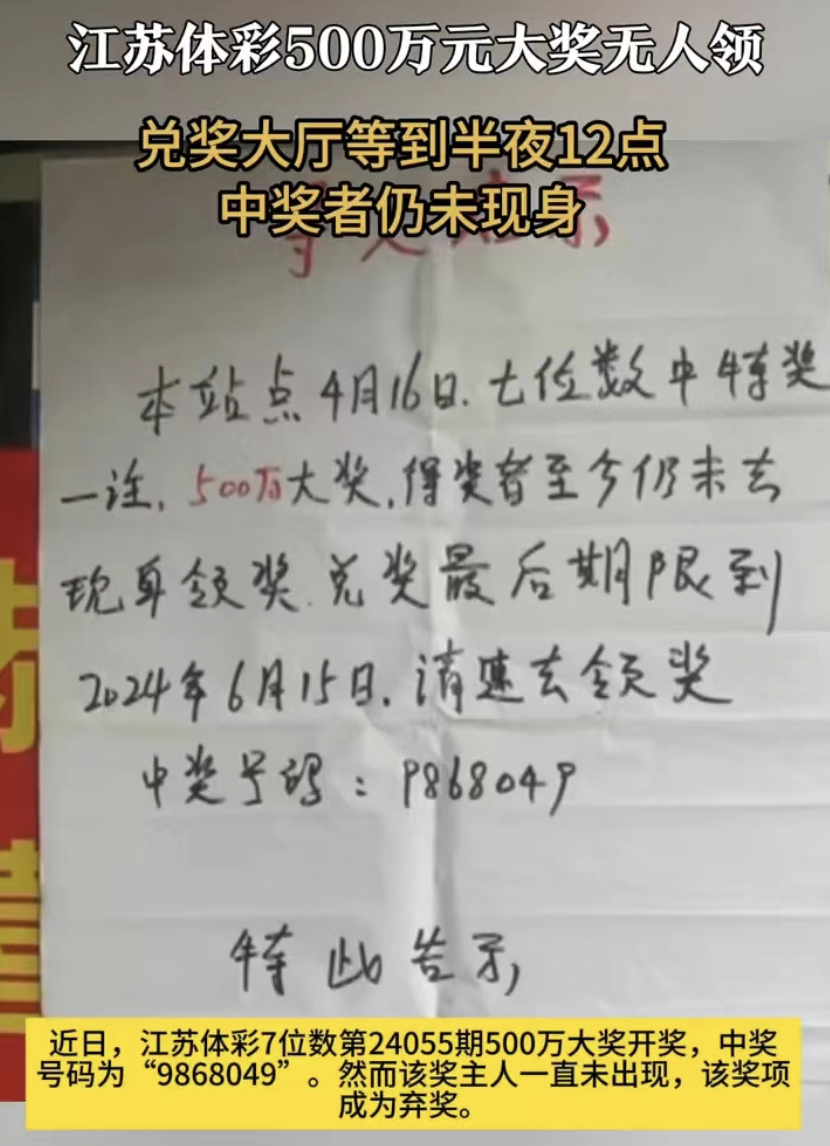 江苏体彩500万元大奖无人领
兑奖大厅等到半夜12点
中奖者仍未现身
本站点4月16日.七位数中特奖
一注,500万大奖,得奖者至今仍未去
现身领奖.兑奖最后期限到
2024年6月15日.请速去领奖
中奖号码:9868049
特此告示
近日，江苏体彩7位数第24055期500万大奖开奖，中奖
号码为“9868049”。然而该奖主人一直未出现，该奖项
成为弃奖。